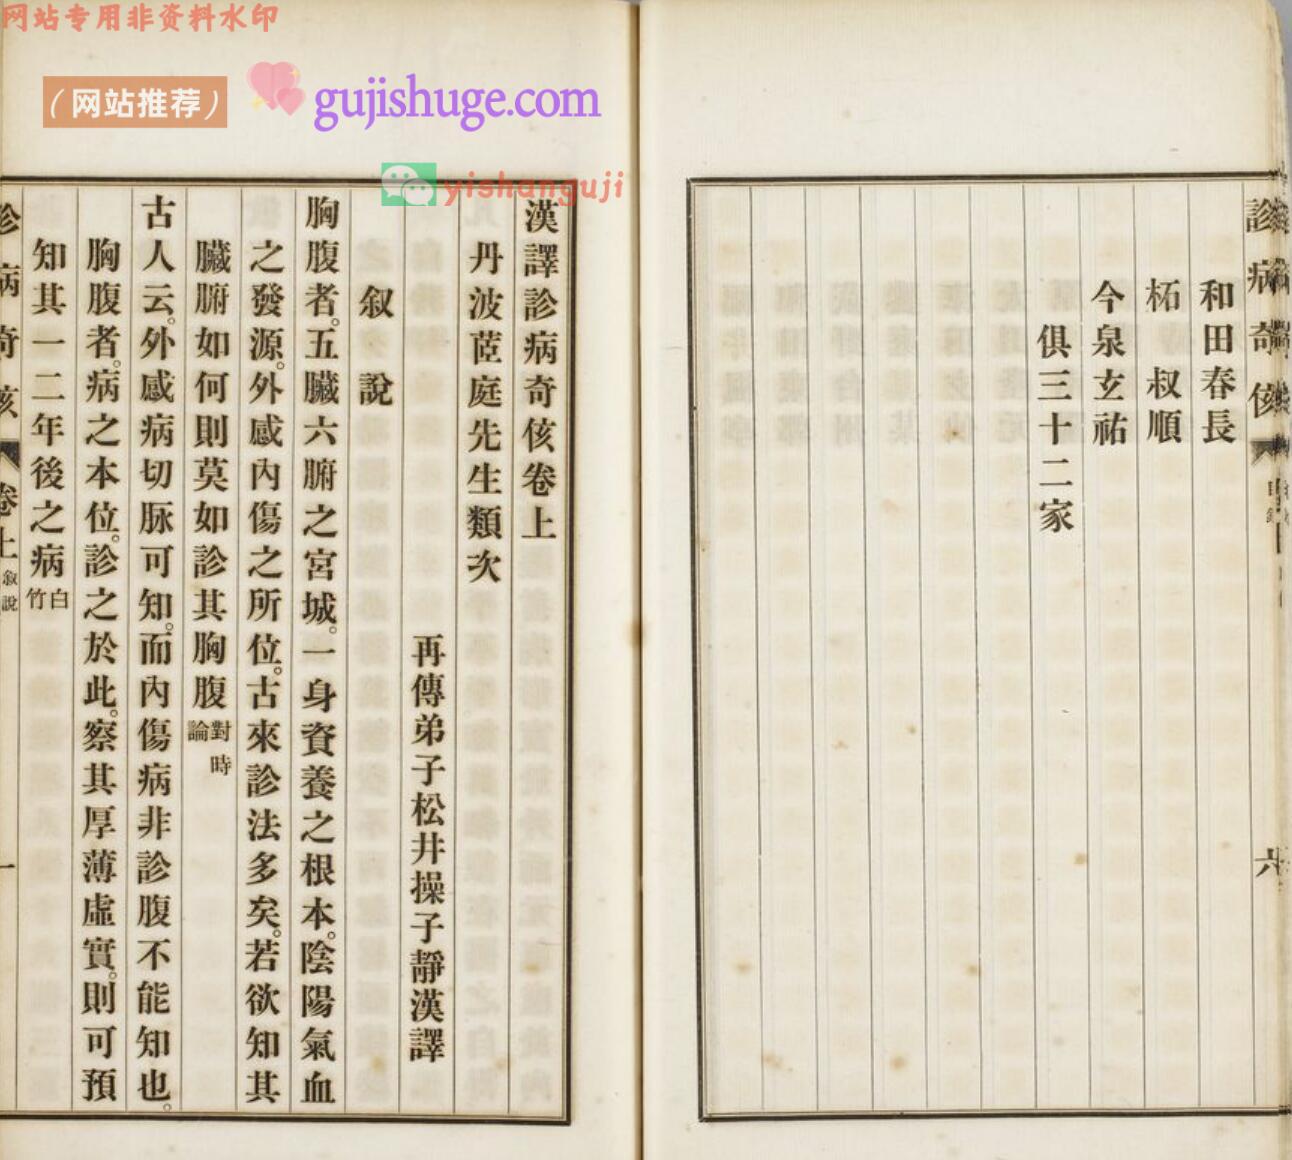 网站专用非资料水印
（网站推荐）
gujishuge.com
yishanguji
診病奇侅
六
和田春長
柘 叔順
今泉玄祐
俱三十二家
漢譯診病奇侅卷上
丹波茝庭先生類次
再傳弟子松井操子靜漢譯
叙說
胸腹者。五臟六腑之宮城。一身資養之根本。陰陽氣血
之發源。外感內傷之所位。古來診法多矣。若欲知其
臟腑如何則莫如診其胸腹對時論
古人云。外感病切脉可知。而內傷病非診腹不能知也。
胸腹者。病之本位。診之於此。察其厚薄虛實。則可預
知其一二年後之病白竹
診病奇侅 卷上 叙說 一